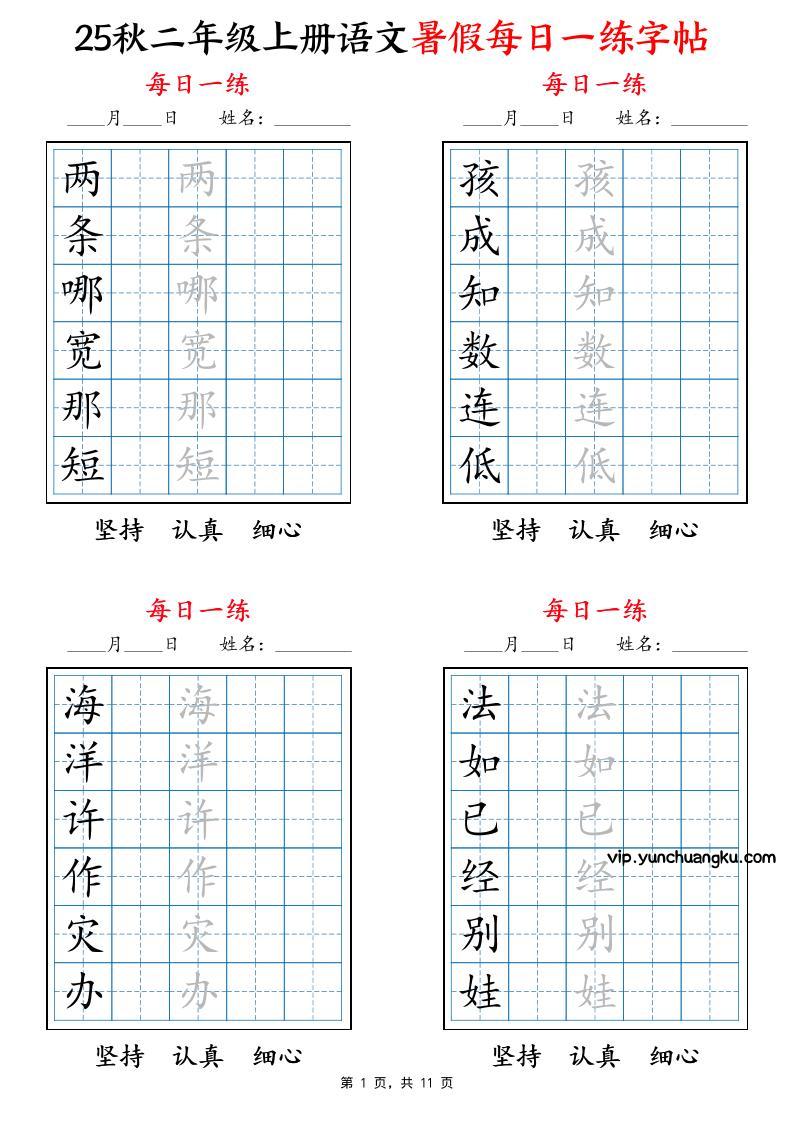 25秋二年级上册语文暑假每日一练字帖
每日一练
____月____日 姓名：________
两 两
条 条
哪 哪
宽 宽
那 那
短 短
坚持 认真 细心
每日一练
____月____日 姓名：________
孩 孩
成 成
知 知
数 数
连 连
低 低
坚持 认真 细心
每日一练
____月____日 姓名：________
海 海
洋 洋
许 许
作 作
灾 灾
办 办
坚持 认真 细心
每日一练
____月____日 姓名：________
法 法
如 如
已 已
vip.yunchuangku.com
经 经
别 别
娃 娃
坚持 认真 细心
第 1 页，共 11 页